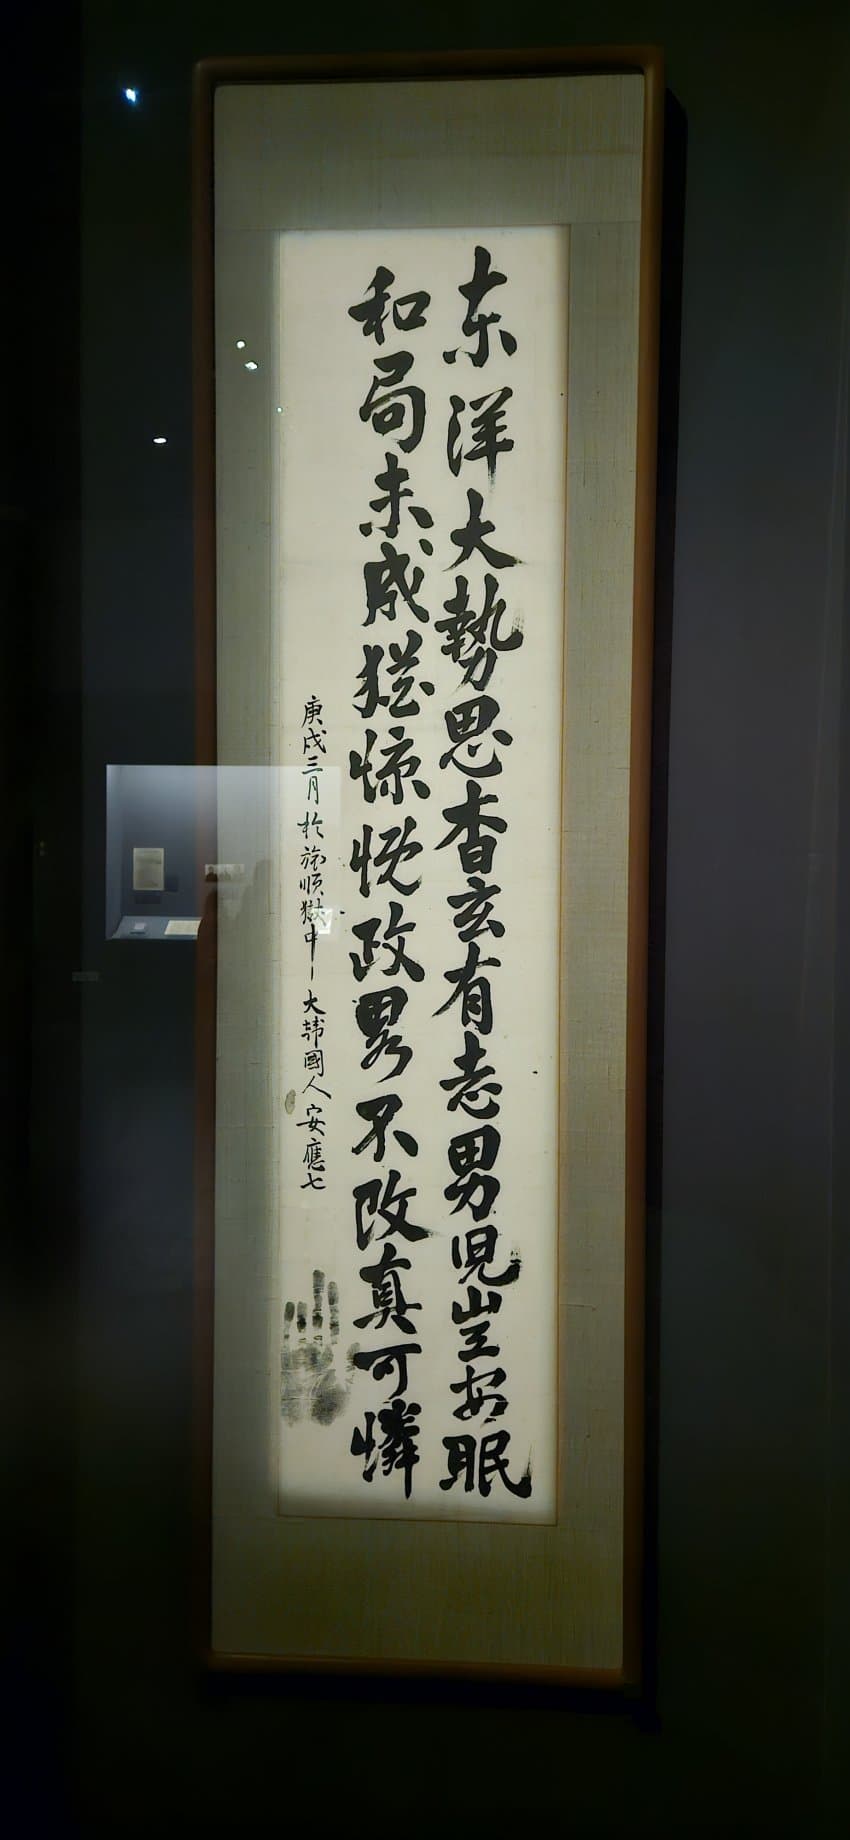 东洋大勢思杳玄有志男児豈安眠
和局未成猶惊慨政畧不改真可憐
庚戌三月 於旅順獄中 大韓國人 安應七